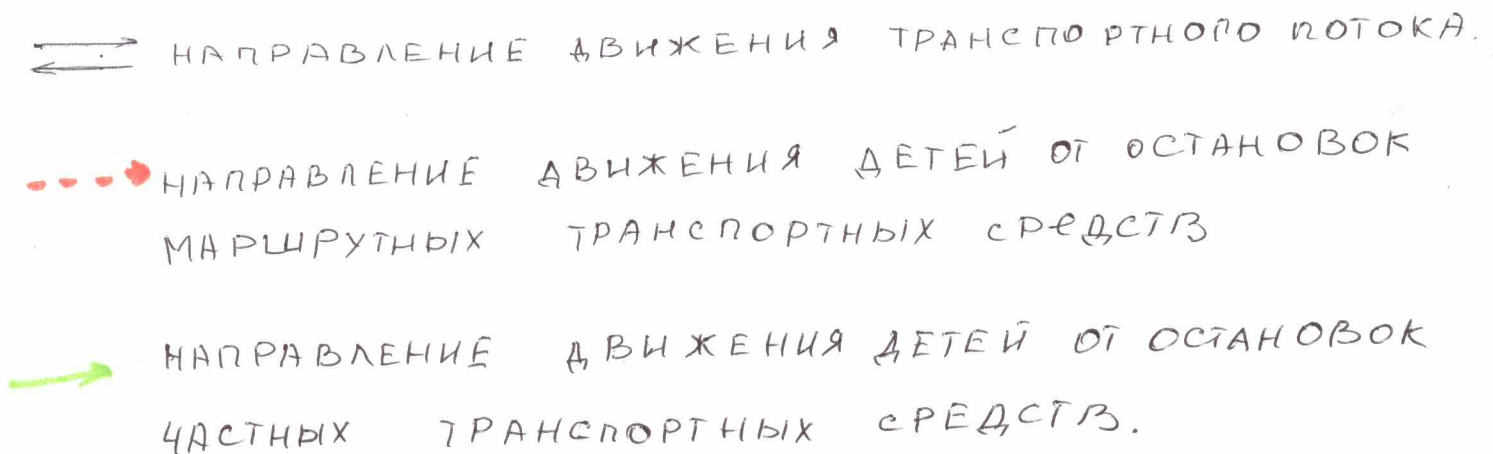 НАПРАВЛЕНИЕ ДВИЖЕНИЯ ТРАНСПОРТНОГО ПОТОКА.
НАПРАВЛЕНИЕ ДВИЖЕНИЯ ДЕТЕЙ ОТ ОСТАНОВОК
МАРШРУТНЫХ ТРАНСПОРТНЫХ СРЕДСТВ
НАПРАВЛЕНИЕ ДВИЖЕНИЯ ДЕТЕЙ ОТ ОСТАНОВОК
ЧАСТНЫХ ТРАНСПОРТНЫХ СРЕДСТВ.